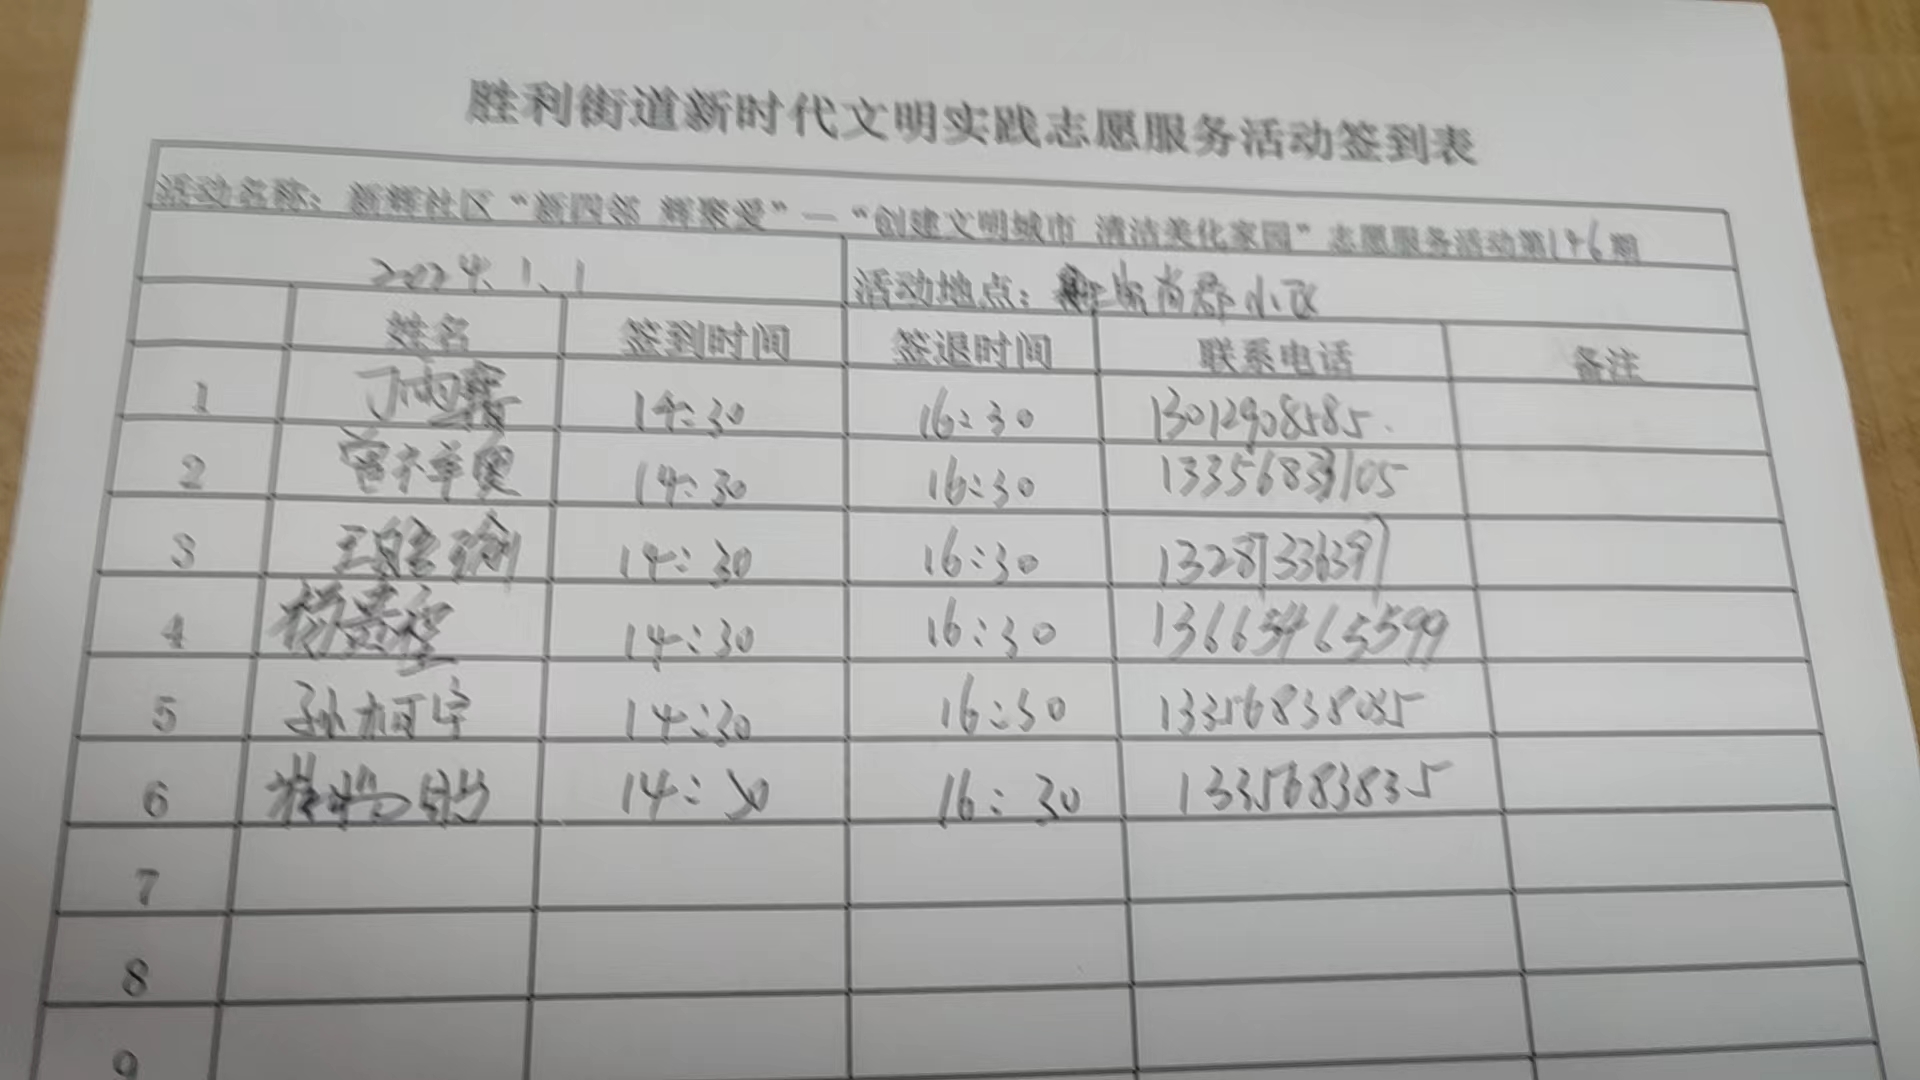 胜利街道新时代文明实践志愿服务活动签到表
活动名称：新辉社区“新四邻 辉聚爱”—“创建文明城市 清洁美化家园”志愿服务活动第146期
2024.1.1 活动地点： 尚郡小区
姓名 签到时间 签退时间 联系电话 备注
1 丁雨 14:30 16:30 13012908585
2 14:30 16:30 13356837105
3 王 瑜 14:30 16:30 13287336397
4 杨景程 14:30 16:30 13665465599
5 孙柯宇 14:30 16:30 13356838035
6 14:30 16:30 1335683835
7
8
9